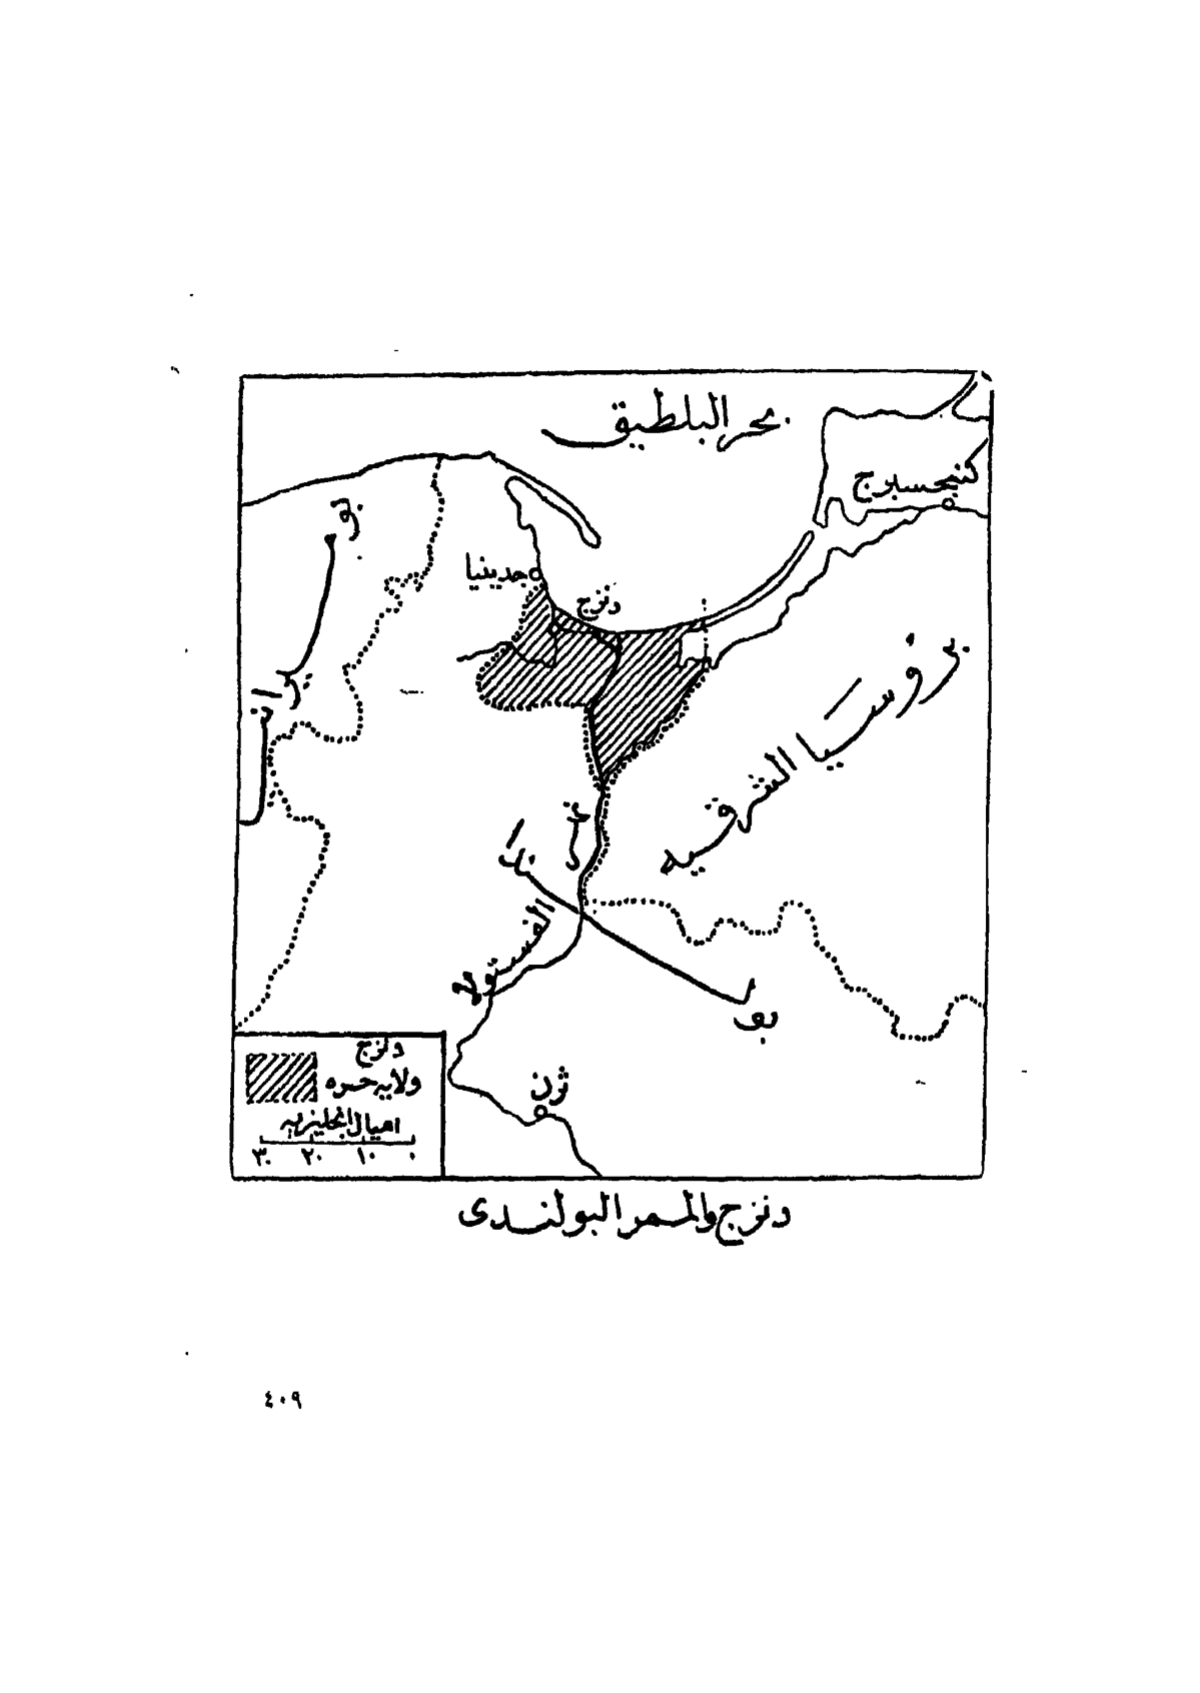 بحر البلطيق
كنيجسبرج
جدينيا
دنزج
بروسيا الشرقيه
نهر
الفستولا
بولندا
ثرن
دنزج
ولايه حره
اميال انجليزيه
٣٠ ٢٠ ١٠ ٠
دنزج والممر البولندى
٤٠٩